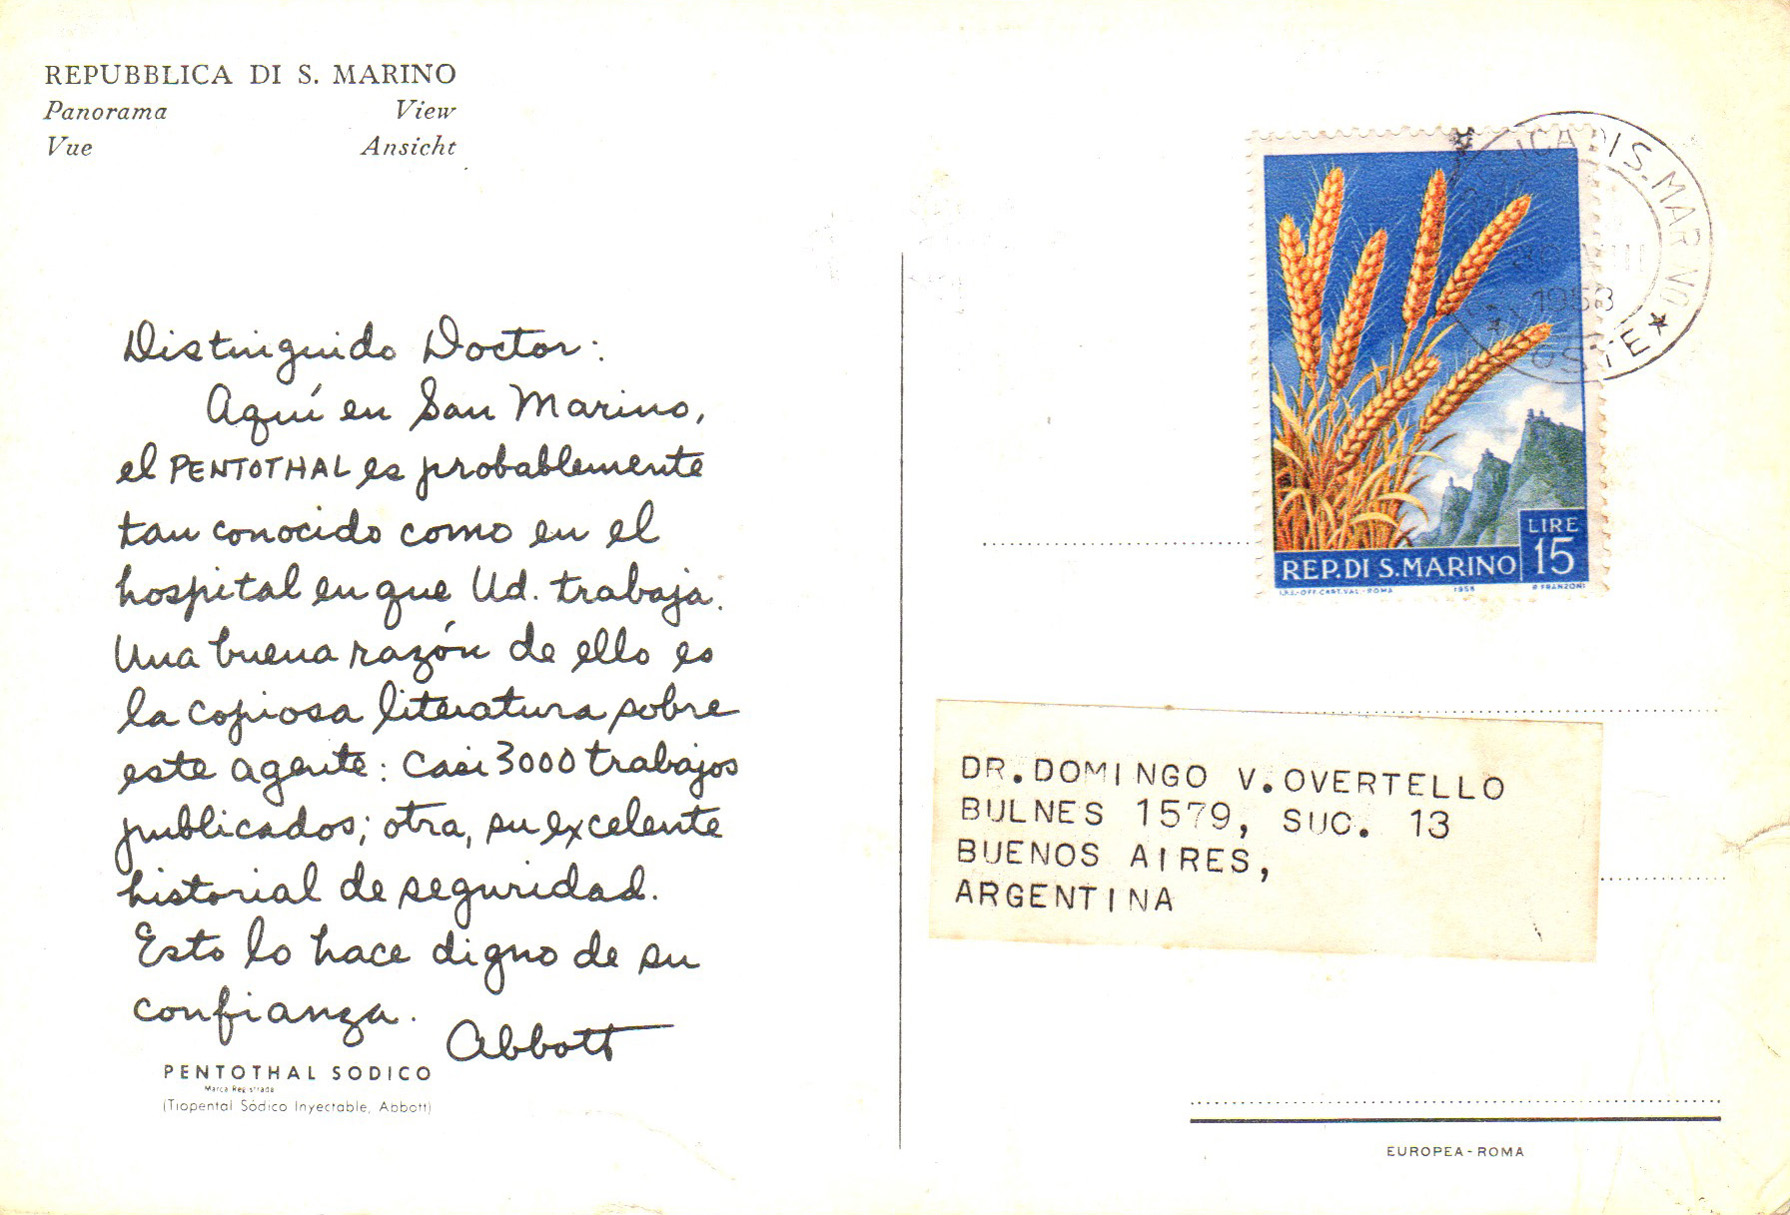 REPUBBLICA DI S. MARINO
Panorama View
Vue Ansicht
Distinguido Doctor:
Aquí en San Marino,
el PENTOTHAL es probablemente
tan conocido como en el
hospital en que Ud. trabaja.
Una buena razón de ello es
la copiosa literatura sobre
este agente: Casi 3000 trabajos
publicados; otra, su excelente
historial de seguridad.
Esto lo hace digno de su
confianza.
Abbott
PENTOTHAL SODICO
Marca Registrada
(Tiopental Sódico Inyectable, Abbott)
DI S. MARINO
VIII
1958
POSTE
LIRE
15
REP. DI S. MARINO
I.P.S.-OFF. CART. VAL.-ROMA 1958 R. FRANZONI
DR. DOMINGO V. OVERTELLO
BULNES 1579, SUC. 13
BUENOS AIRES,
ARGENTINA
EUROPEA-ROMA